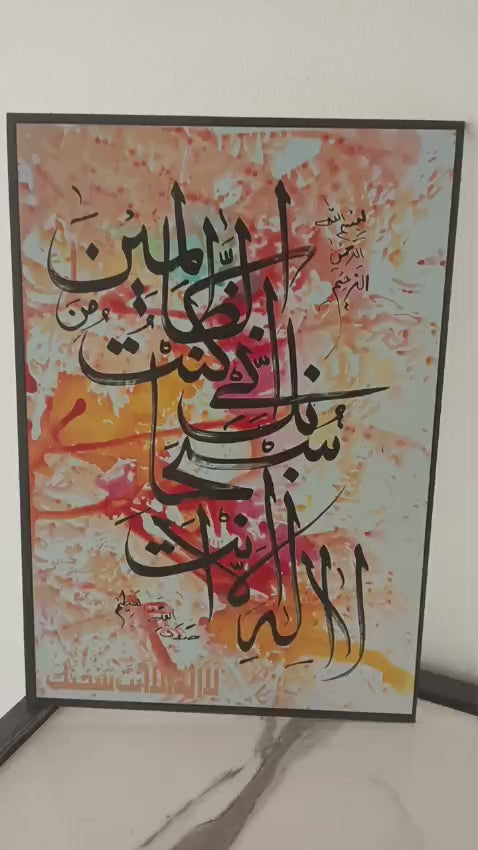 بسم الله
الرحمن
الرحيم
لَا إِلَهَ إِلَّا أَنْتَ
سُبْحَانَكَ
إِنِّي كُنْتُ
مِنَ الظَّالِمِيْنَ
صدق الله العظيم
لا إله إلا أنت سبحنك